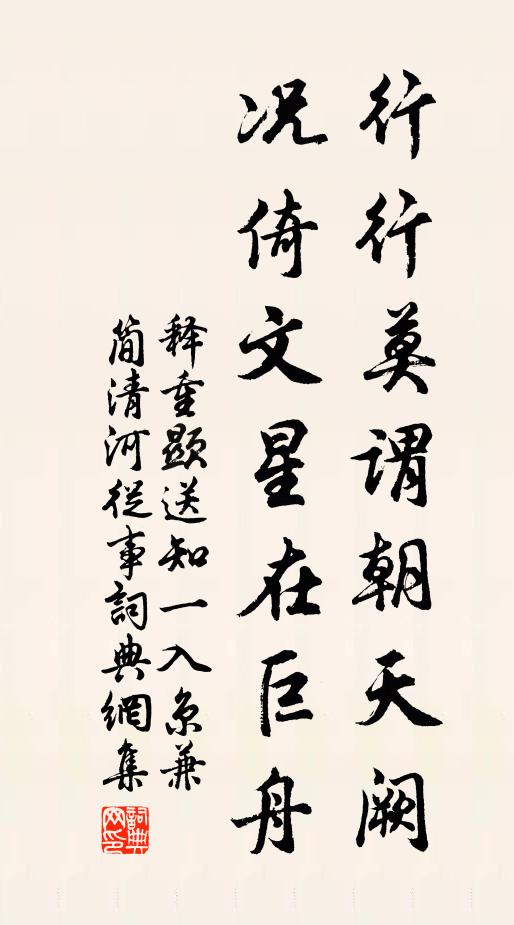 行行莫謂朝天闕
况倚文星在巨舟
释重顯送知一入京兼
简清河從事詞典網集
詞典
网印